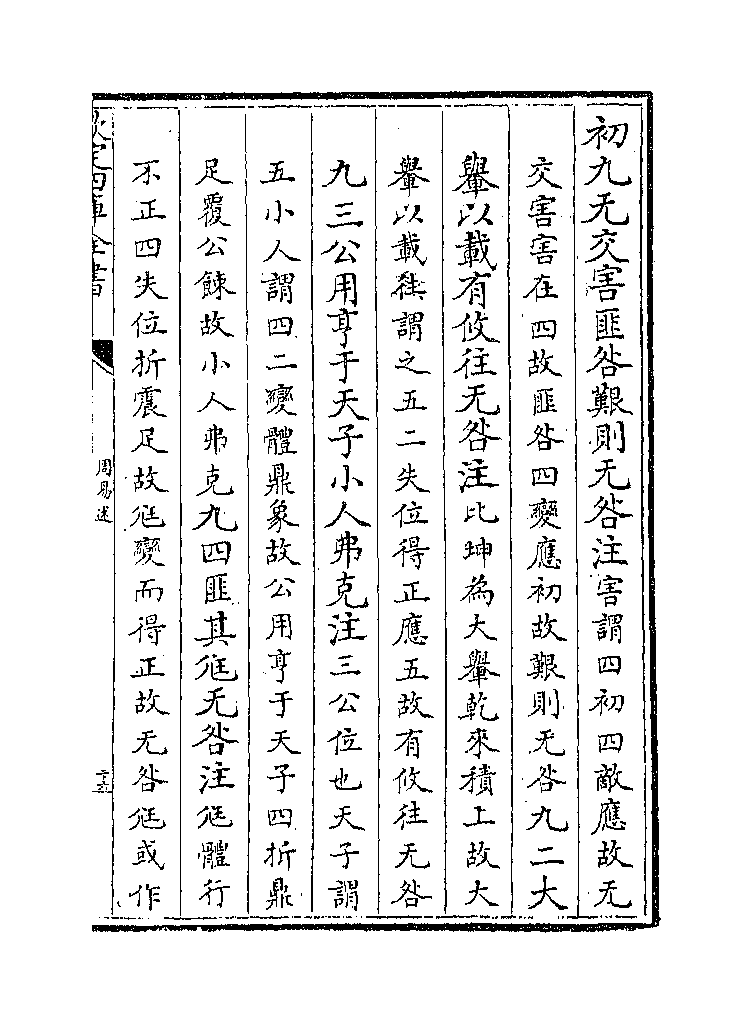 初九无交害匪咎艱則无咎注害謂四初四敵應故无
交害害在四故匪咎四變應初故艱則无咎九二大
轝以載有攸往无咎注比坤為大轝乾來積上故大
轝以載往謂之五二失位得正應五故有攸往无咎
九三公用亨于天子小人弗克注三公位也天子謂
五小人謂四二變體鼎象故公用亨于天子四折鼎
足覆公餗故小人弗克九四匪其尫无咎注尫體行
不正四失位折震足故尫變而得正故无咎尫或作
欽定四庫全書
周易述